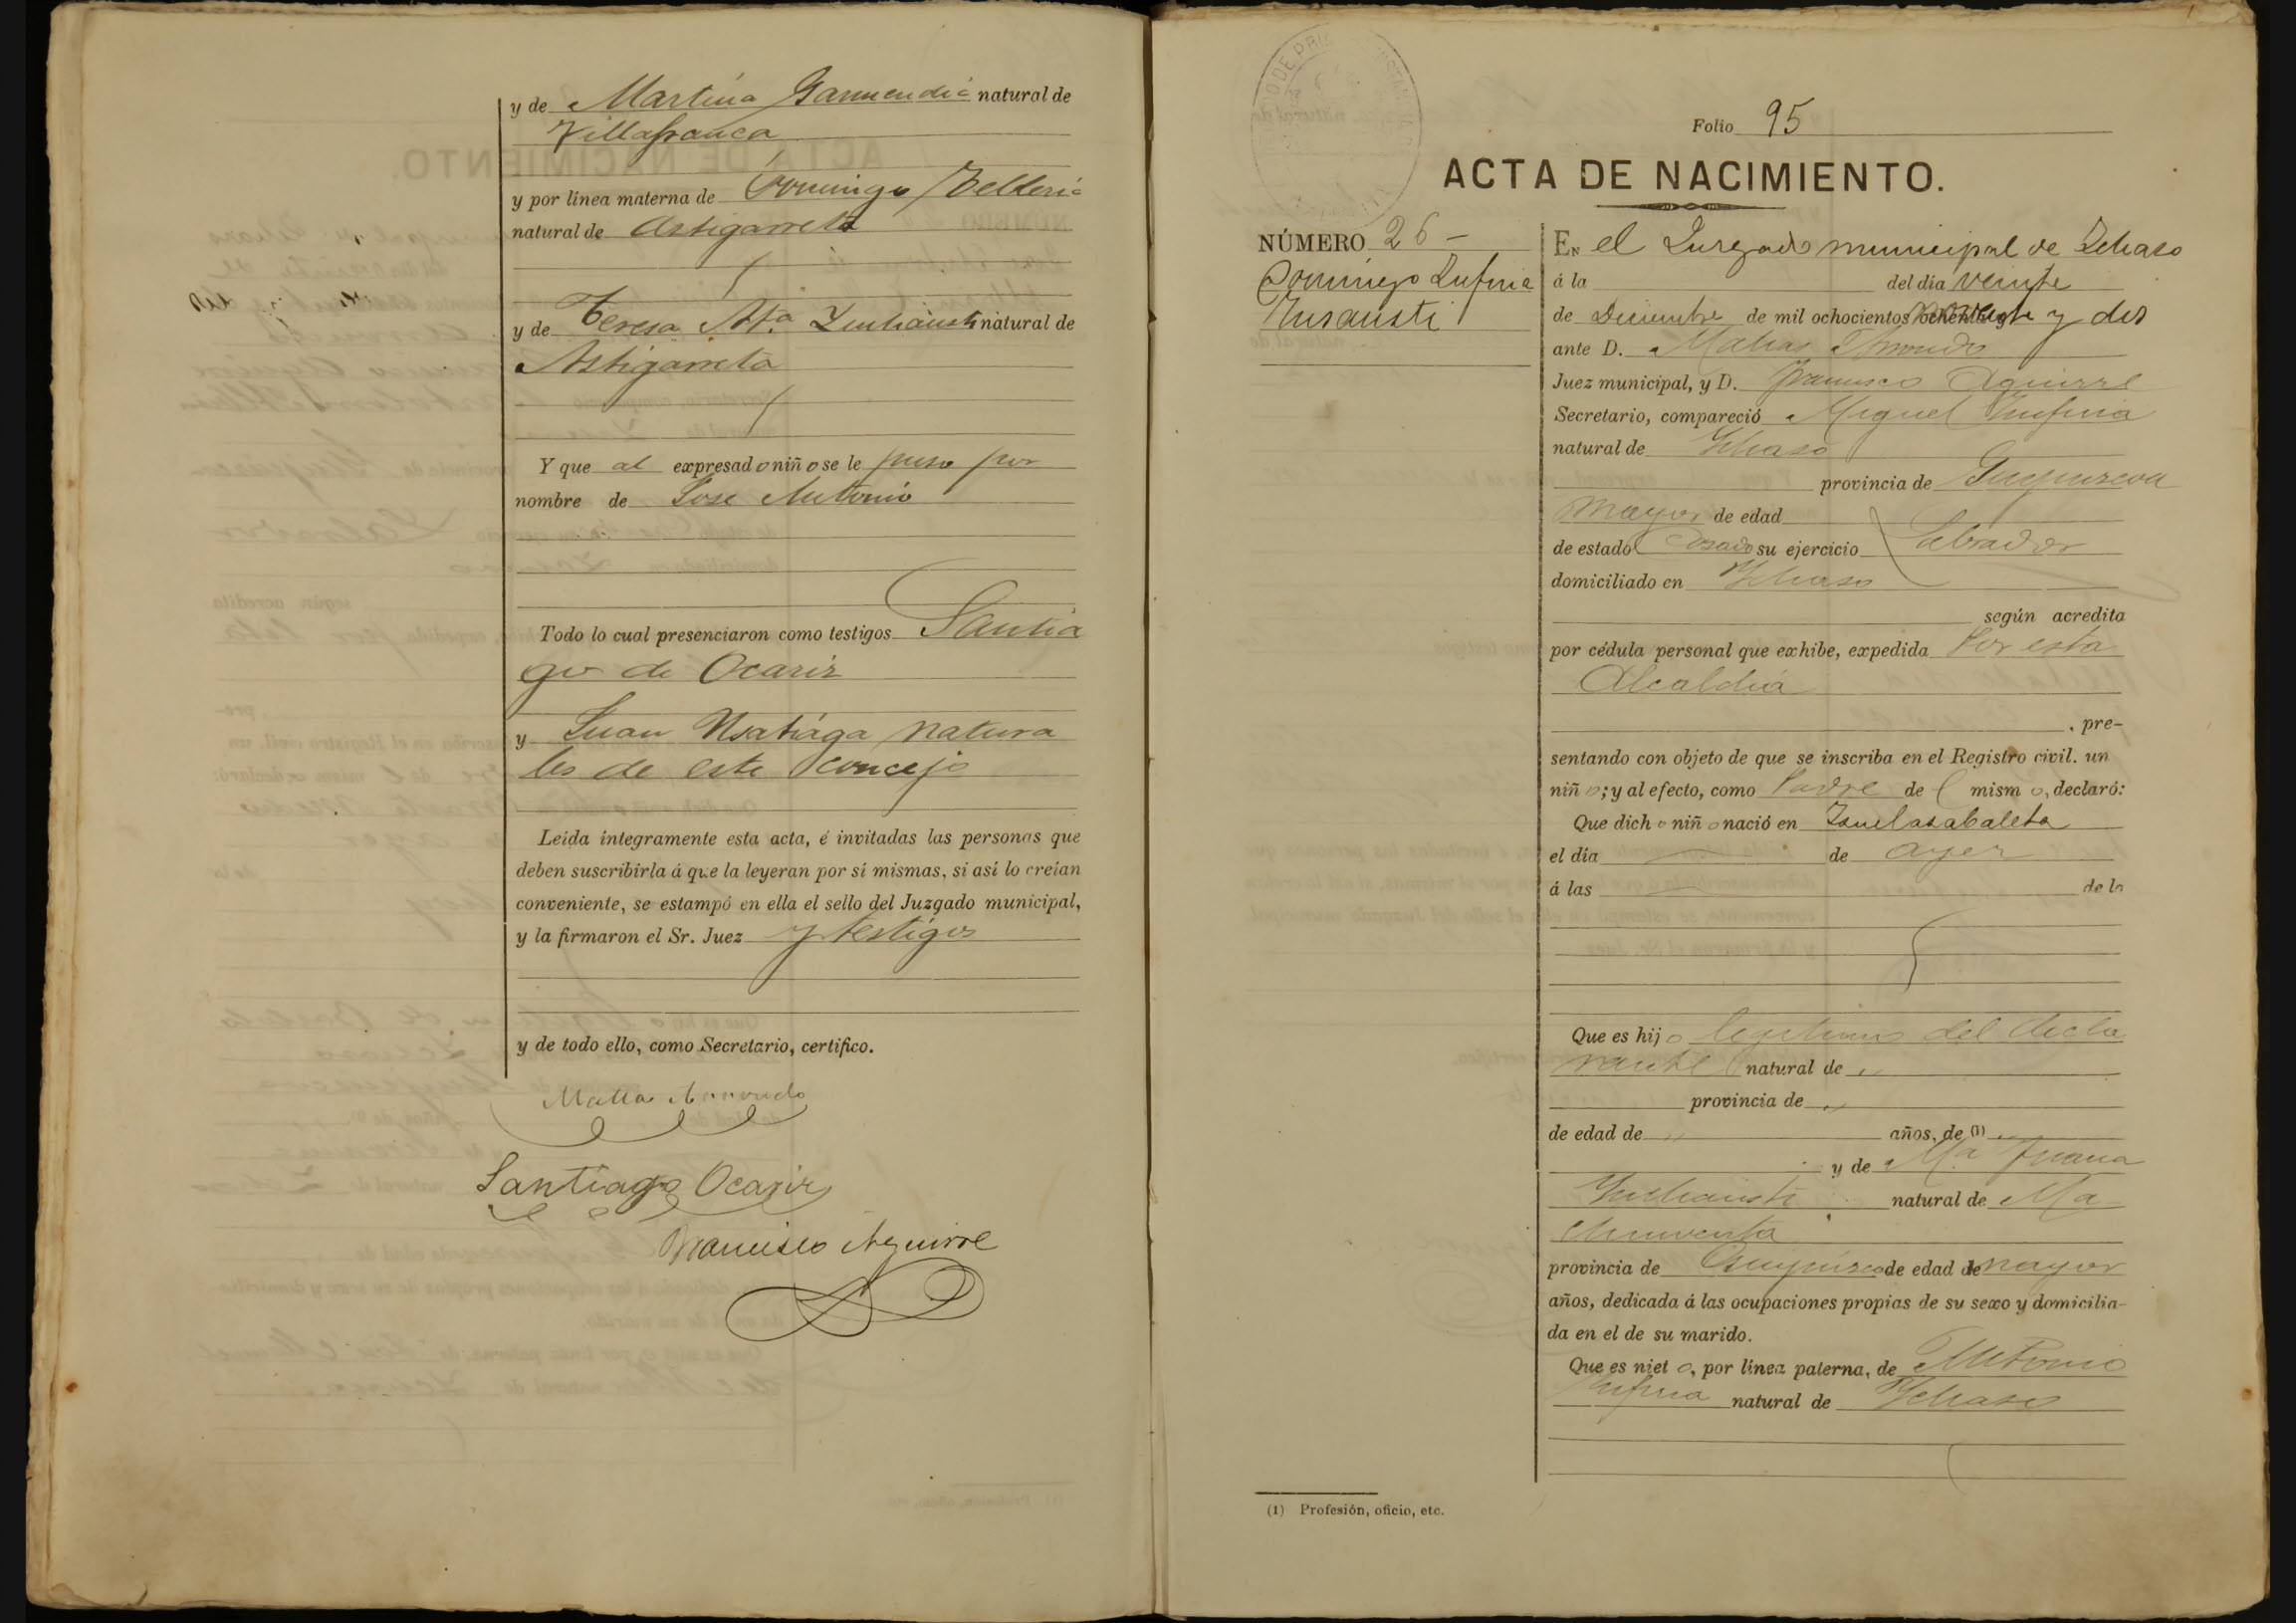 y de Martina Garmendia natural de
Villafranca
y por línea materna de Domingo Telleria
natural de Astigarreta
y de Teresa Mª Inchausti natural de
Astigarreta
Y que al expresado niño se le puso por
nombre de Jose Antonio
Todo lo cual presenciaron como testigos Santia
go de Ocariz
y Juan Usatiaga natura
les de este concejo
Leída íntegramente esta acta, é invitadas las personas que
deben suscribirla á que la leyeran por sí mismas, si así lo creían
conveniente, se estampó en ella el sello del Juzgado municipal,
y la firmaron el Sr. Juez y testigos
y de todo ello, como Secretario, certifico.
Santiago Ocariz
Francisco Aguirre
Folio 95
ACTA DE NACIMIENTO.
NÚMERO 26
Domingo
En el Juzgado municipal de Ichaso
á la del día veinte
de Diciembre de mil ochocientos noventa y dos
ante D. Matias
Juez municipal, y D. Francisco Aguirre
Secretario, compareció Miguel
natural de Ichaso
provincia de Guipuzcoa
mayor de edad
de estado Casado su ejercicio Labrador
domiciliado en Ichaso
según acredita
por cédula personal que exhibe, expedida Por esta
Alcaldia
, pre-
sentando con objeto de que se inscriba en el Registro civil. un
niño; y al efecto, como Padre del mismo, declaró:
Que dicho niño nació en
el día de ayer
á las de la
Que es hijo legitimo del decla
rante natural de "
provincia de "
de edad de " años, de (1) "
y de Mª Juana
Inchausti natural de Ma
provincia de Guipúzcoa de edad de mayor
años, dedicada á las ocupaciones propias de su sexo y domicilia-
da en el de su marido.
Que es nieto, por línea paterna, de Antonio
natural de Ichaso
(1) Profesión, oficio, etc.